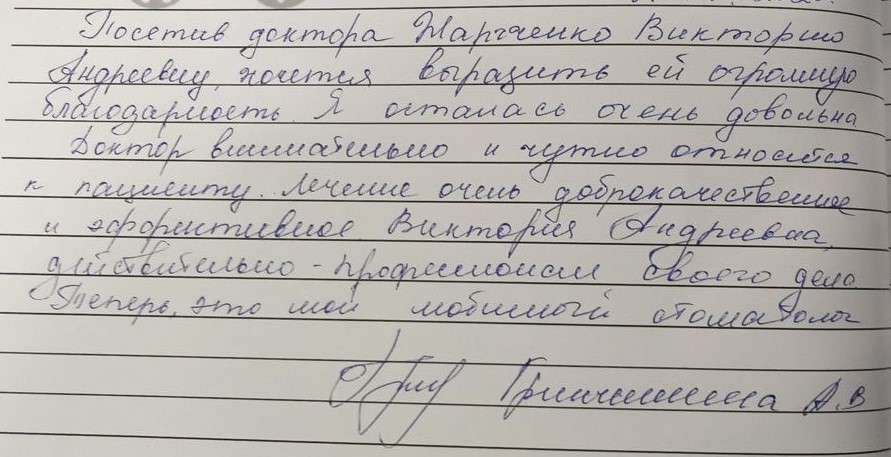 Посетив доктора Викторию
Андреевну, хочется выразить ей огромную
благодарность. Я осталась очень довольна
Доктор внимательно и чутко относится
к пациенту. Лечение очень доброкачественное
и эффективное. Виктория Андреевна,
действительно - профессионал своего дела
Теперь, это мой любимый стоматолог
А.В